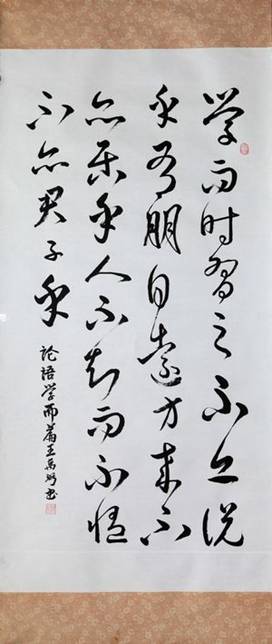 学而时習之不亦说
乎有朋自遠方来不
亦乐乎人不知而不愠
不亦君子乎
论语学而篇王书